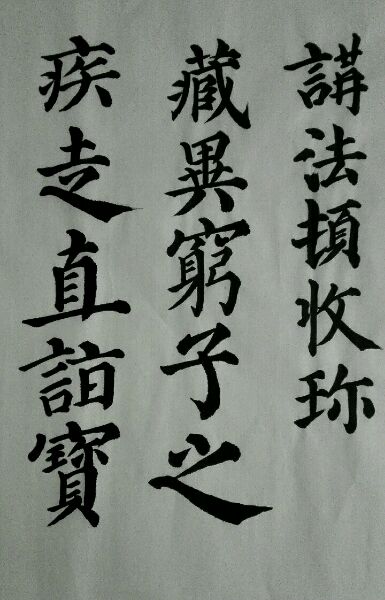 講法頓收珎
藏異窮子之
疾走直詣寳